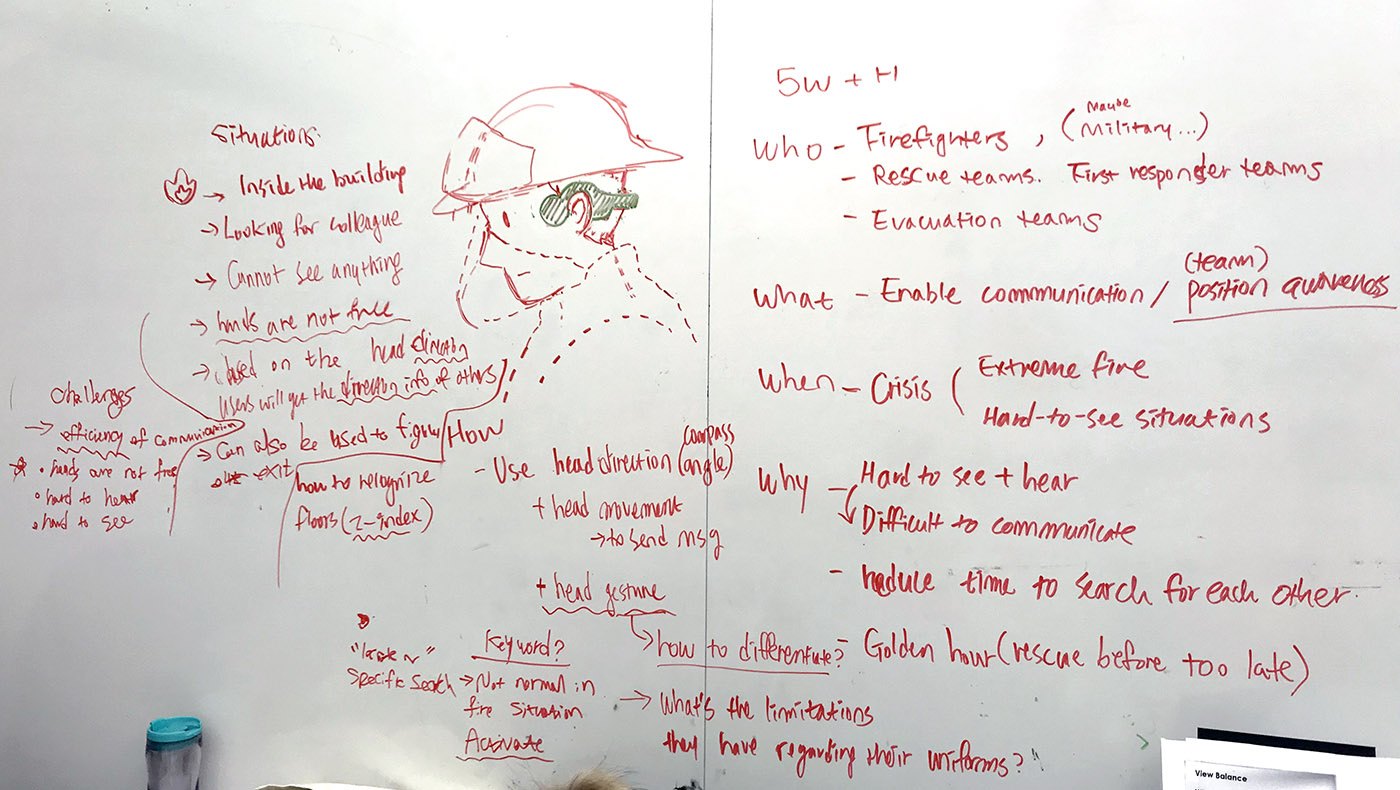 Situations:
→ Inside the building
→ Looking for colleague
→ Cannot see anything
→ hands are not free
→ based on the head direction
users will get the direction info of others
→ Can also be used to figure
out exit
Challenges
→ efficiency of communication
• hands are not free
• hard to hear
• hard to see
how to recognize
floors (z-index)
How
- Use head direction (compass angle)
+ head movement
→ to send msg
+ head gesture
→ how to differentiate?
→ What's the limitations
they have regarding their uniforms?"
Keyword?
specific search → Not normal in
fire situation
Activate
5W + H
Who - Firefighters, (Maybe Military...)
- Rescue teams. First responder teams
- Evacuation teams
What - Enable communication / (team) position awareness
When - Crisis ( Extreme fire
Hard-to-see situations
Why - Hard to see + hear
→ Difficult to communicate
- Reduce time to search for each other.
- Golden hour (rescue before too late)
View Balance